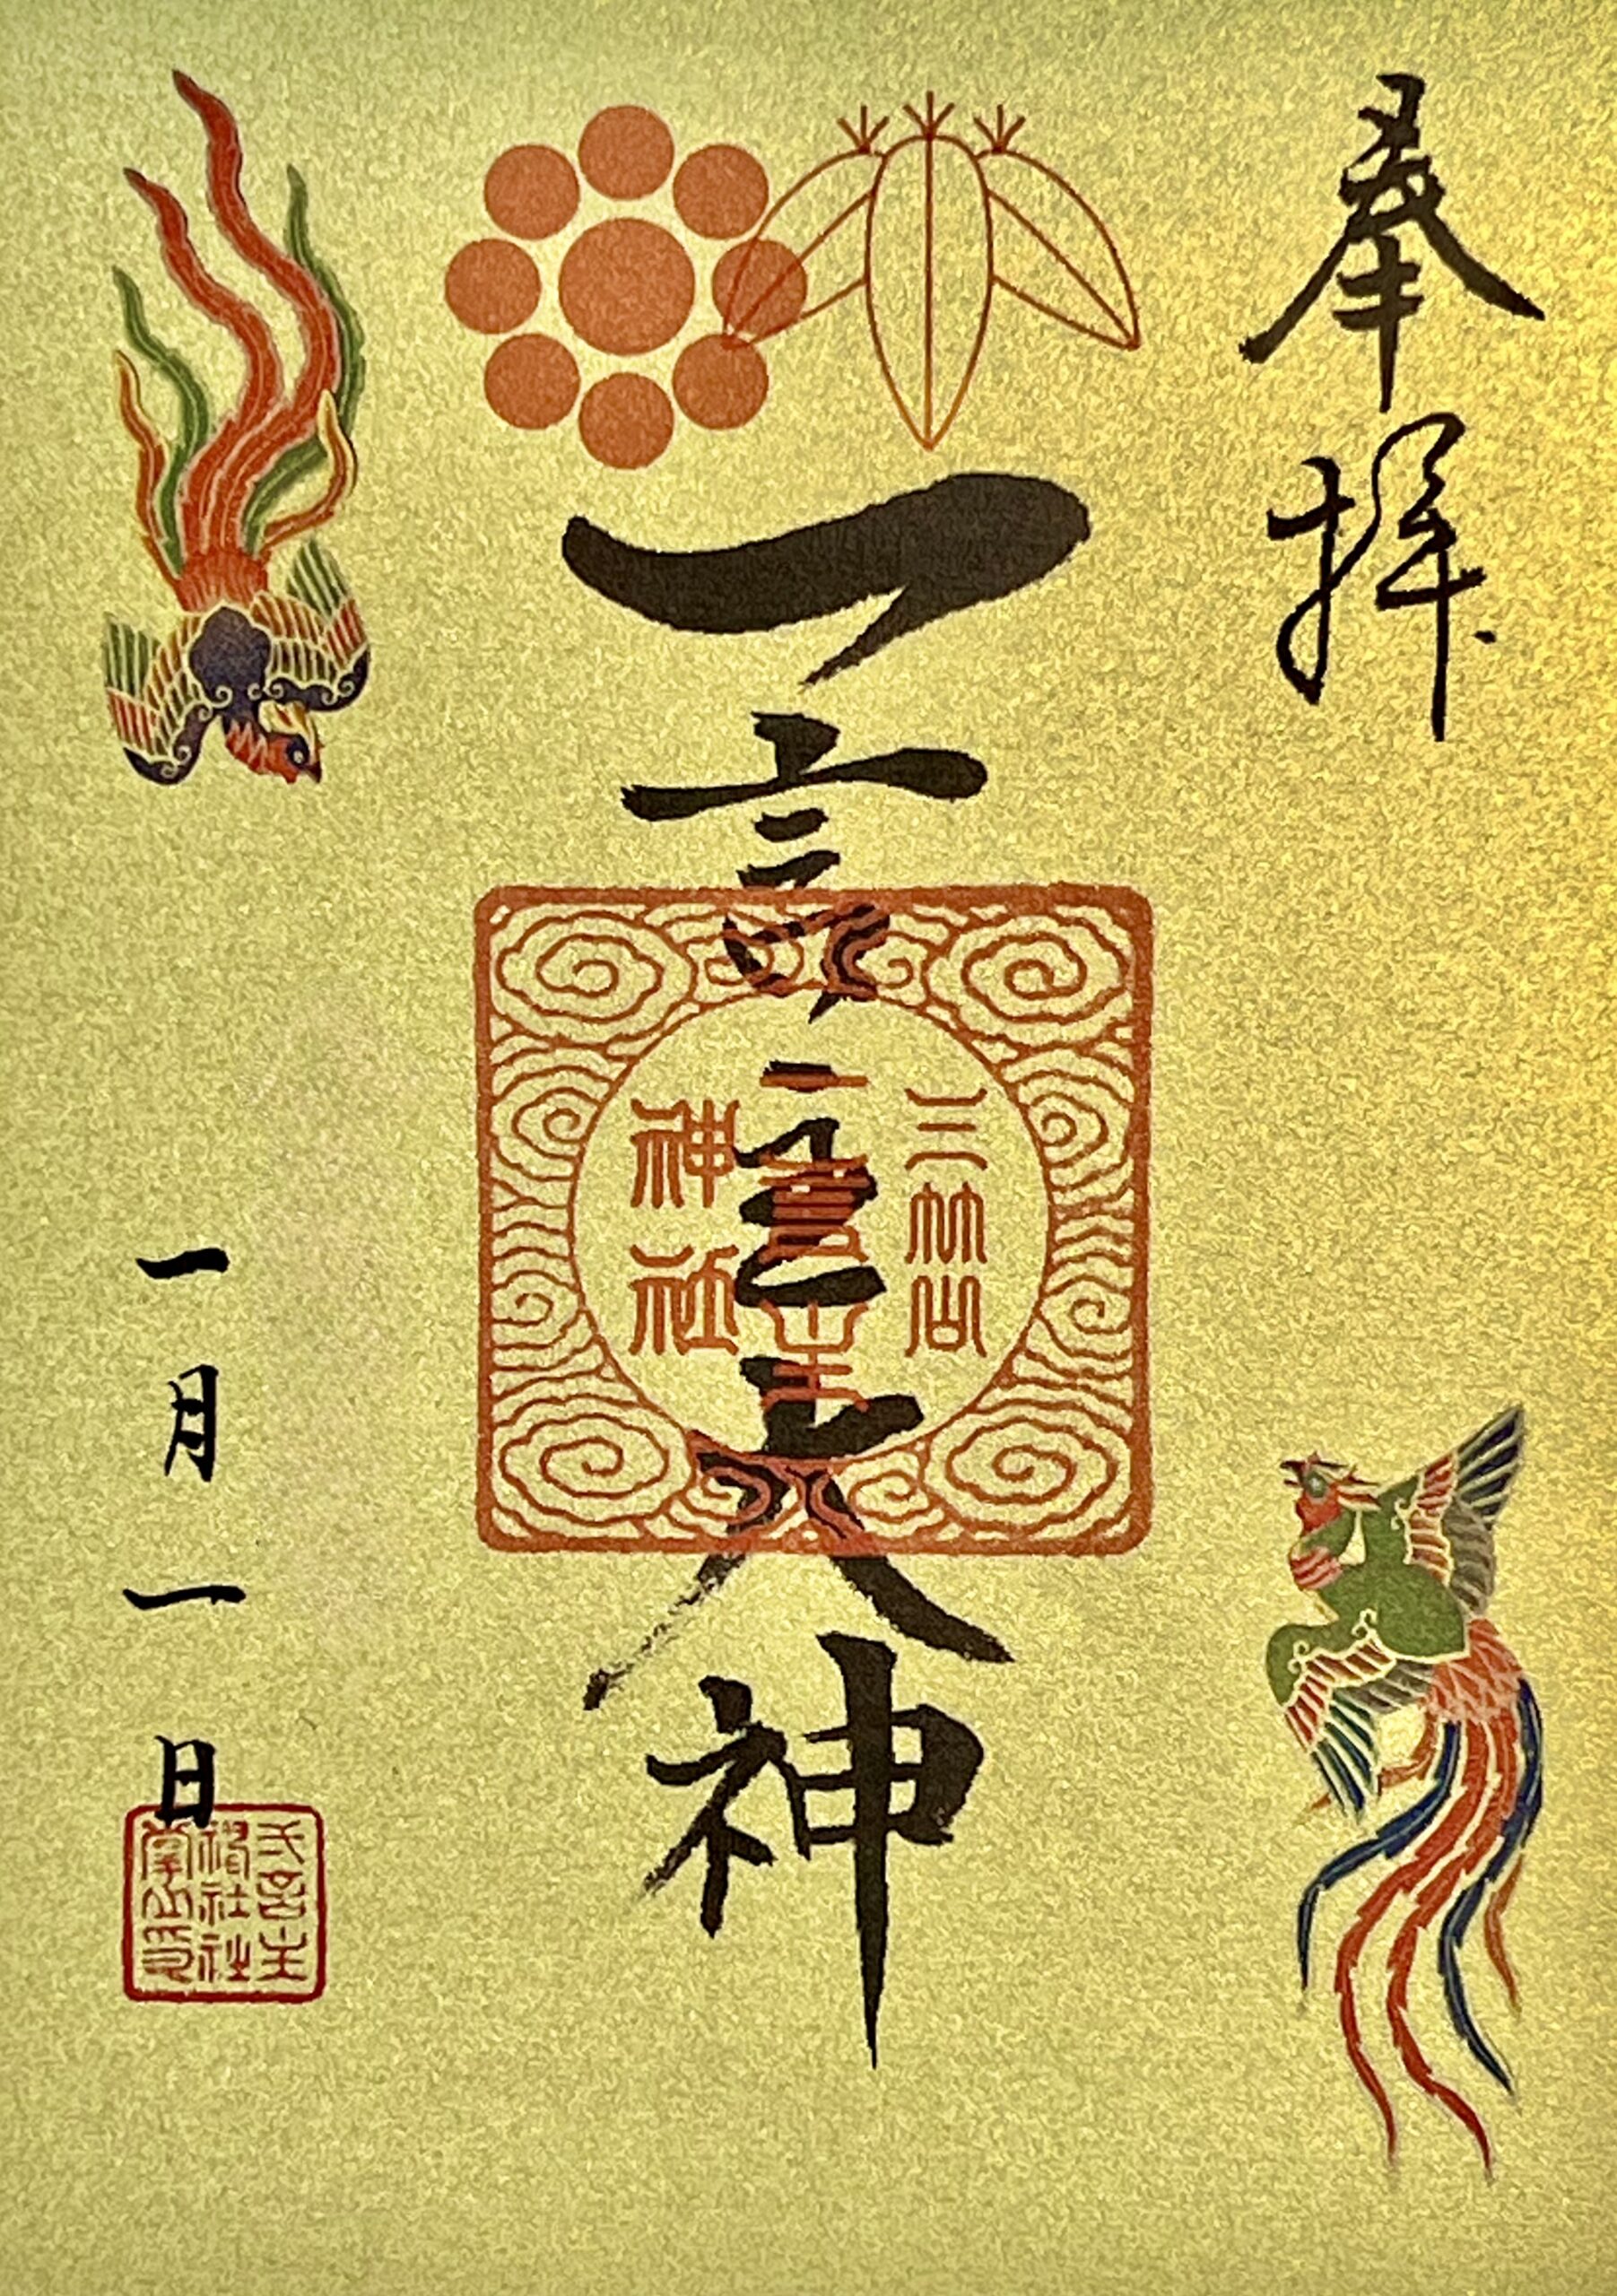 奉拝
一言主大神
三竹山
一言主
神社
一月一日
言主
神社社
掌之印